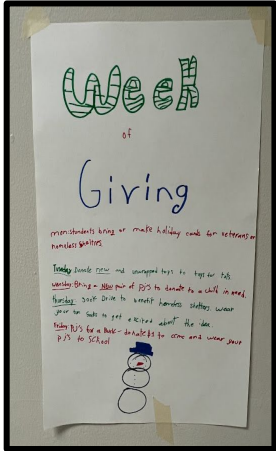 Week
of
Giving
mon: students bring or make holiday cards for veterans or
homeless families
Tuesday Donate new and unwrapped toys to toys for tots
Wensday: Bring a New pair of PJ's to donate to a child in need.
Thursday sock Drive to benefit homeless shelters. wear
your fun socks to get excited about the idea.
Friday PJ's for a Buck - donate $1 to come and wear your
PJ's to School